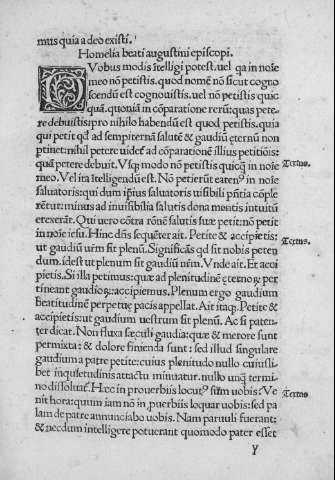 mus quia a deo existi.
Homelia beati augustini episcopi.
DVobus modis ītelligi potest. uel qa in noīe
meo nō petistis. quod nomē nō sicut cogno
scendū est cognouistis. uel nō petistis quic
quā. quoniā in cōparatione rerū: quas pete
re debuistis: pro nihilo habendū est quod petistis. quia
qui petit qd ad sempiternā salutē & gaudiū eternū non
ptinet: nihil petere uidet ad cōparationē illius petitiōis:
quā petere debuit. Vsq; modo nō petistis quicq in noīe
meo. Vel ita ītelligendū est. Nō petierūt eaten in noīe
saluatoris: qui dum ipsius saluatoris uisibili pn̄tia cōple
rētur: minus ad inuisibilia salutis dona mentis intuitū
erexerāt. Qui uero cōtra rōnē salutis suæ petit: nō petit
in noīe iesu. Hinc dn̄s sequēter ait. Petite & accipietis:
ut gaudiū urm̄ sit plenū. Significās qd sit nobis peten
dum. idest ut plenum sit gaudiū urm̄. Vnde ait. Et acci
pietis. Si illa petimus: quæ ad plenitudinē æternoꝝ per
tineant gaudioꝝ: accipiemus. Plenum ergo gaudium
beatitudinē perpetuę pacis appellat. Ait itaq;. Petite &
accipietis: ut gaudium uestrum sit plenū. Ac si paten-
ter dicat. Non fluxa sæculi gaudia: quæ & merore sunt
permixta: & dolore finienda sunt: sed illud singulare
gaudium a patre petite: cuius plenitudo nullo cuiusli-
bet inquietudinis attactu minuatur. nullo unq termi-
no dissoluat. Hæc in prouerbiis locut sum uobis: Ve
nit hora: quum iam nō in puerbiis loquar uobis: sed pa
lam de patre annunciabo uobis. Nam paruuli fuerant:
& necdum intelligere potuerant quomodo pater esset
y
Textus.
Textus.
Textus